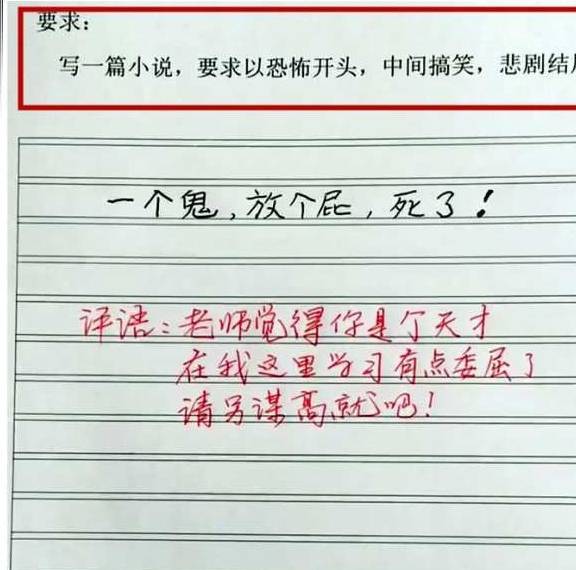 要求：
写一篇小说，要求以恐怖开头，中间搞笑，悲剧结
一个鬼，放个屁，死了！
评语：老师觉得你是个天才
在我这里学习有点委屈了
请另谋高就吧！